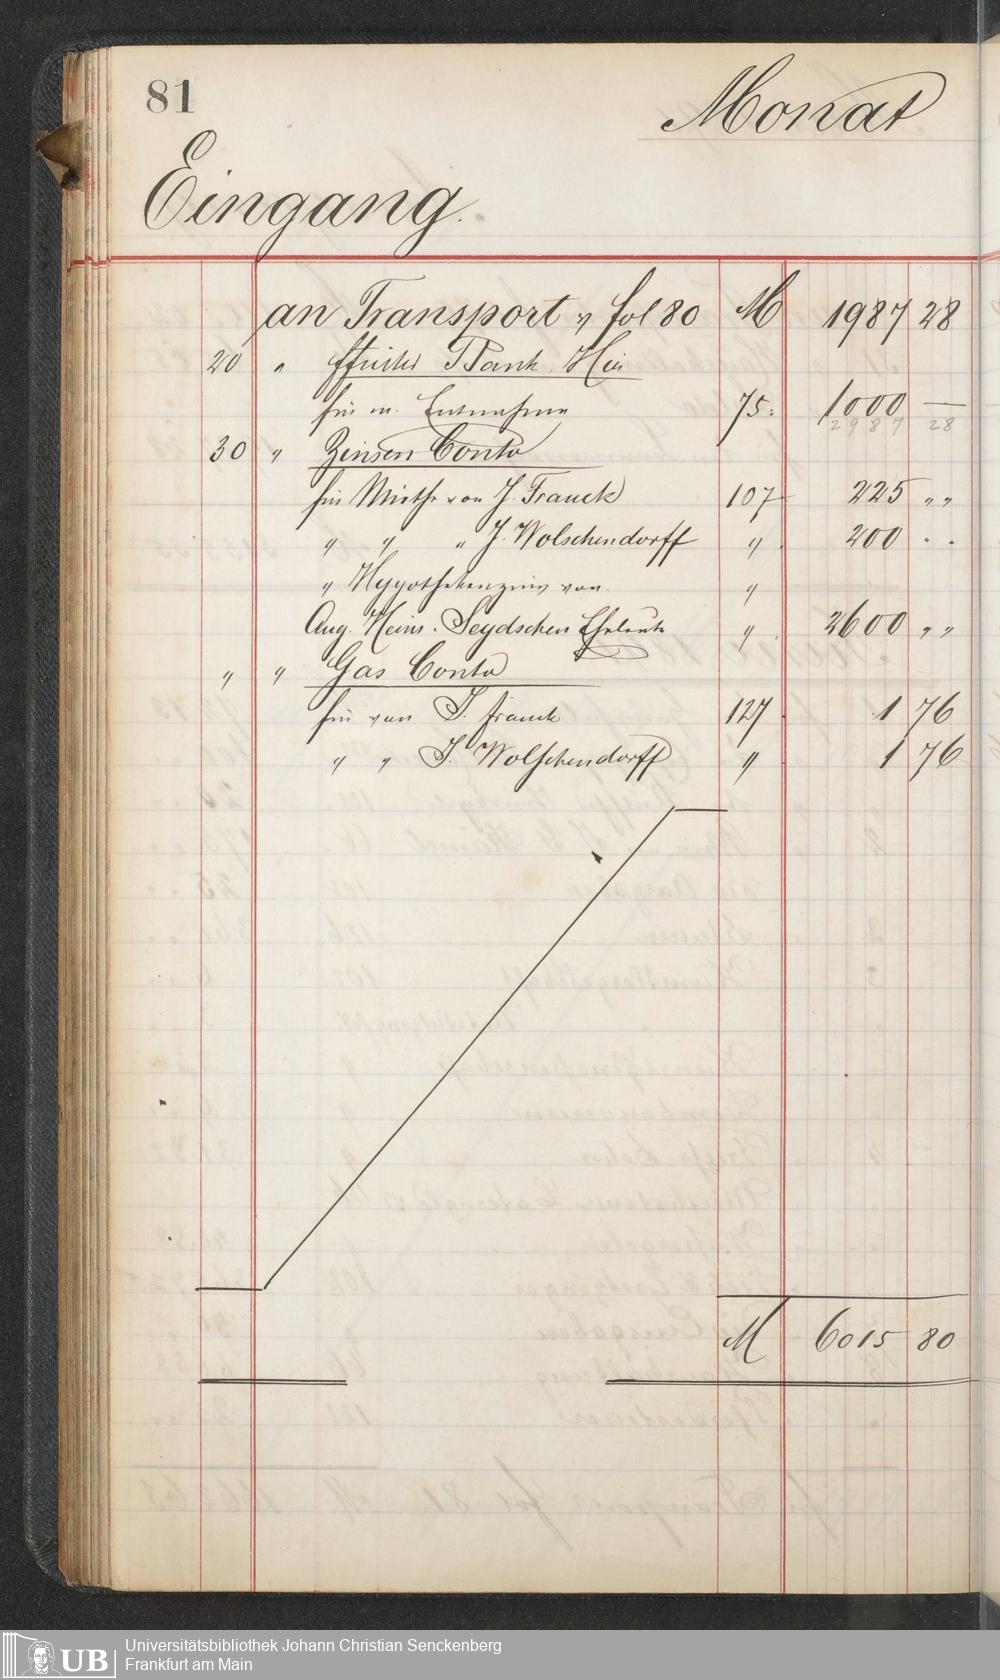 81
Monat
Eingang.
an Transport v fol 80 M 1987 28
20 " Bank Hier
für m. Entnahme 75. 1000 —
2987 28
30 " Zinsen Conto
für Miethe von J. Franck 107 225 " "
" " " J. Wolschendorff " 200 " "
" Hypothekenzins von "
Aug. Heinr. Seydschen Eheleute " 2600 " "
" " Gas Conto
für von J. Franck 127 1 76
" " J. Wolschendorff " 1 76
M 6015 80
UB
Universitätsbibliothek Johann Christian Senckenberg
Frankfurt am Main